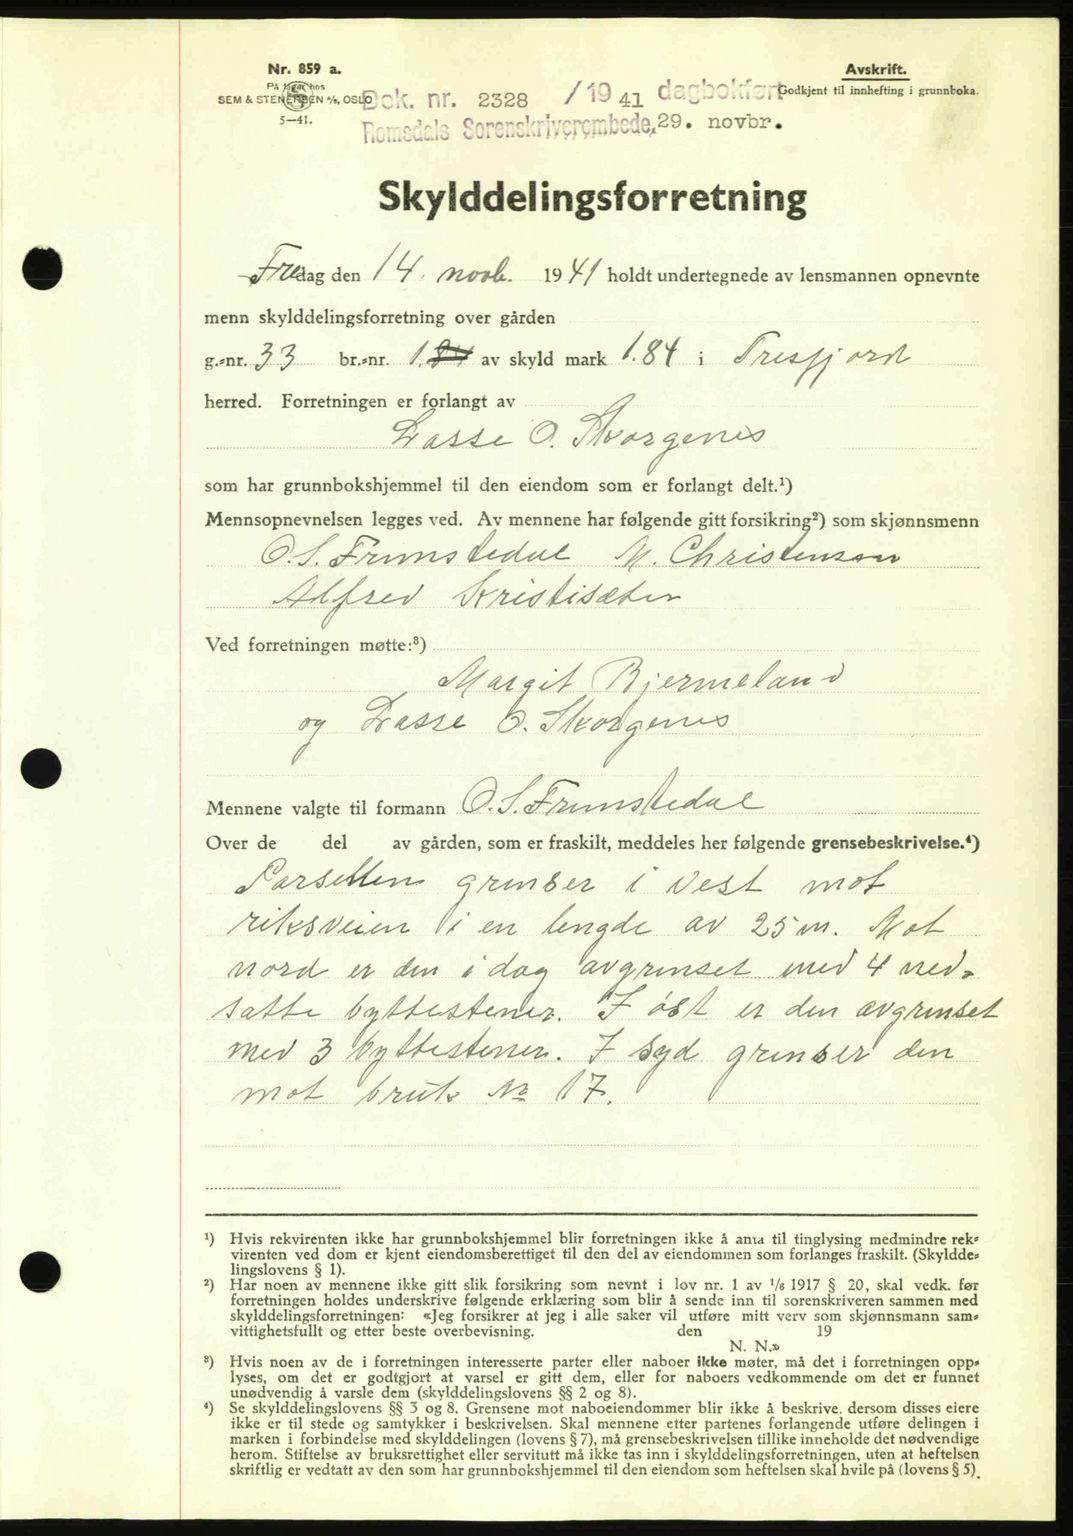 Nr. 859 a.
På lager hos
SEM & STENERSEN A/S, OSLO
5—41.
Dok. nr. 2328 /19 41 dagbokført
Romsdals Sorenskriverembede, 29. novbr.
Avskrift.
Godkjent til innhefting i grunnboka.
Skylddelingsforretning
Fredag den 14. novb. 1941 holdt undertegnede av lensmannen opnevnte
menn skylddelingsforretning over gården
g.-nr. 33 br.-nr. 1 av skyld mark 1.84 i Tresfjord
herred. Forretningen er forlangt av
Lasse O. Skorgenes
som har grunnbokshjemmel til den eiendom som er forlangt delt.¹)
Mennsopnevnelsen legges ved. Av mennene har følgende gitt forsikring²) som skjønnsmenn
O. S. Frimstedal M. Christensen
Alfred Kristisæter
Ved forretningen møtte:³)
Margit Bjermeland
og Lasse O. Skorgenes
Mennene valgte til formann O. S. Frimstedal
Over de del av gården, som er fraskilt, meddeles her følgende grensebeskrivelse.⁴)
Parsellen grenser i vest mot
riksveien i en lengde av 25 m. Mot
nord er den i dag avgrenset med 4 ned-
satte byttestener. I øst er den avgrenset
med 3 byttestener. I syd grenser den
mot bruk No 17.
¹) Hvis rekvirenten ikke har grunnbokshjemmel blir forretningen ikke å anta til tinglysing medmindre rek-
virenten ved dom er kjent eiendomsberettiget til den del av eiendommen som forlanges fraskilt. (Skyldde-
lingslovens § 1).
²) Har noen av mennene ikke gitt slik forsikring som nevnt i lov nr. 1 av ¹/₆ 1917 § 20, skal vedk. før
forretningen holdes underskrive følgende erklæring som blir å sende inn til sorenskriveren sammen med
skylddelingsforretningen: «Jeg forsikrer at jeg i alle saker vil utføre mitt verv som skjønnsmann sam-
vittighetsfullt og etter beste overbevisning. den 19
N. N.»
³) Hvis noen av de i forretningen interesserte parter eller naboer ikke møter, må det i forretningen opp-
lyses, om det er godtgjort at varsel er gitt dem, eller for naboers vedkommende om det er funnet
unødvendig å varsle dem (skylddelingslovens §§ 2 og 8).
⁴) Se skylddelingslovens §§ 3 og 8. Grensene mot naboeiendommer blir ikke å beskrive, dersom disses eiere
ikke er til stede og samtykker i beskrivelsen. Skal mennene etter partenes forlangende utføre delingen i
marken i forbindelse med skylddelingen (lovens § 7), må grensebeskrivelsen tillike inneholde det nødvendige
herom. Stiftelse av bruksrettighet eller servitutt må ikke tas inn i skylddelingsforretningen, uten at heftelsen
skriftlig er vedtatt av den som har grunnbokshjemmel til den eiendom som heftelsen skal hvile på (lovens § 5).